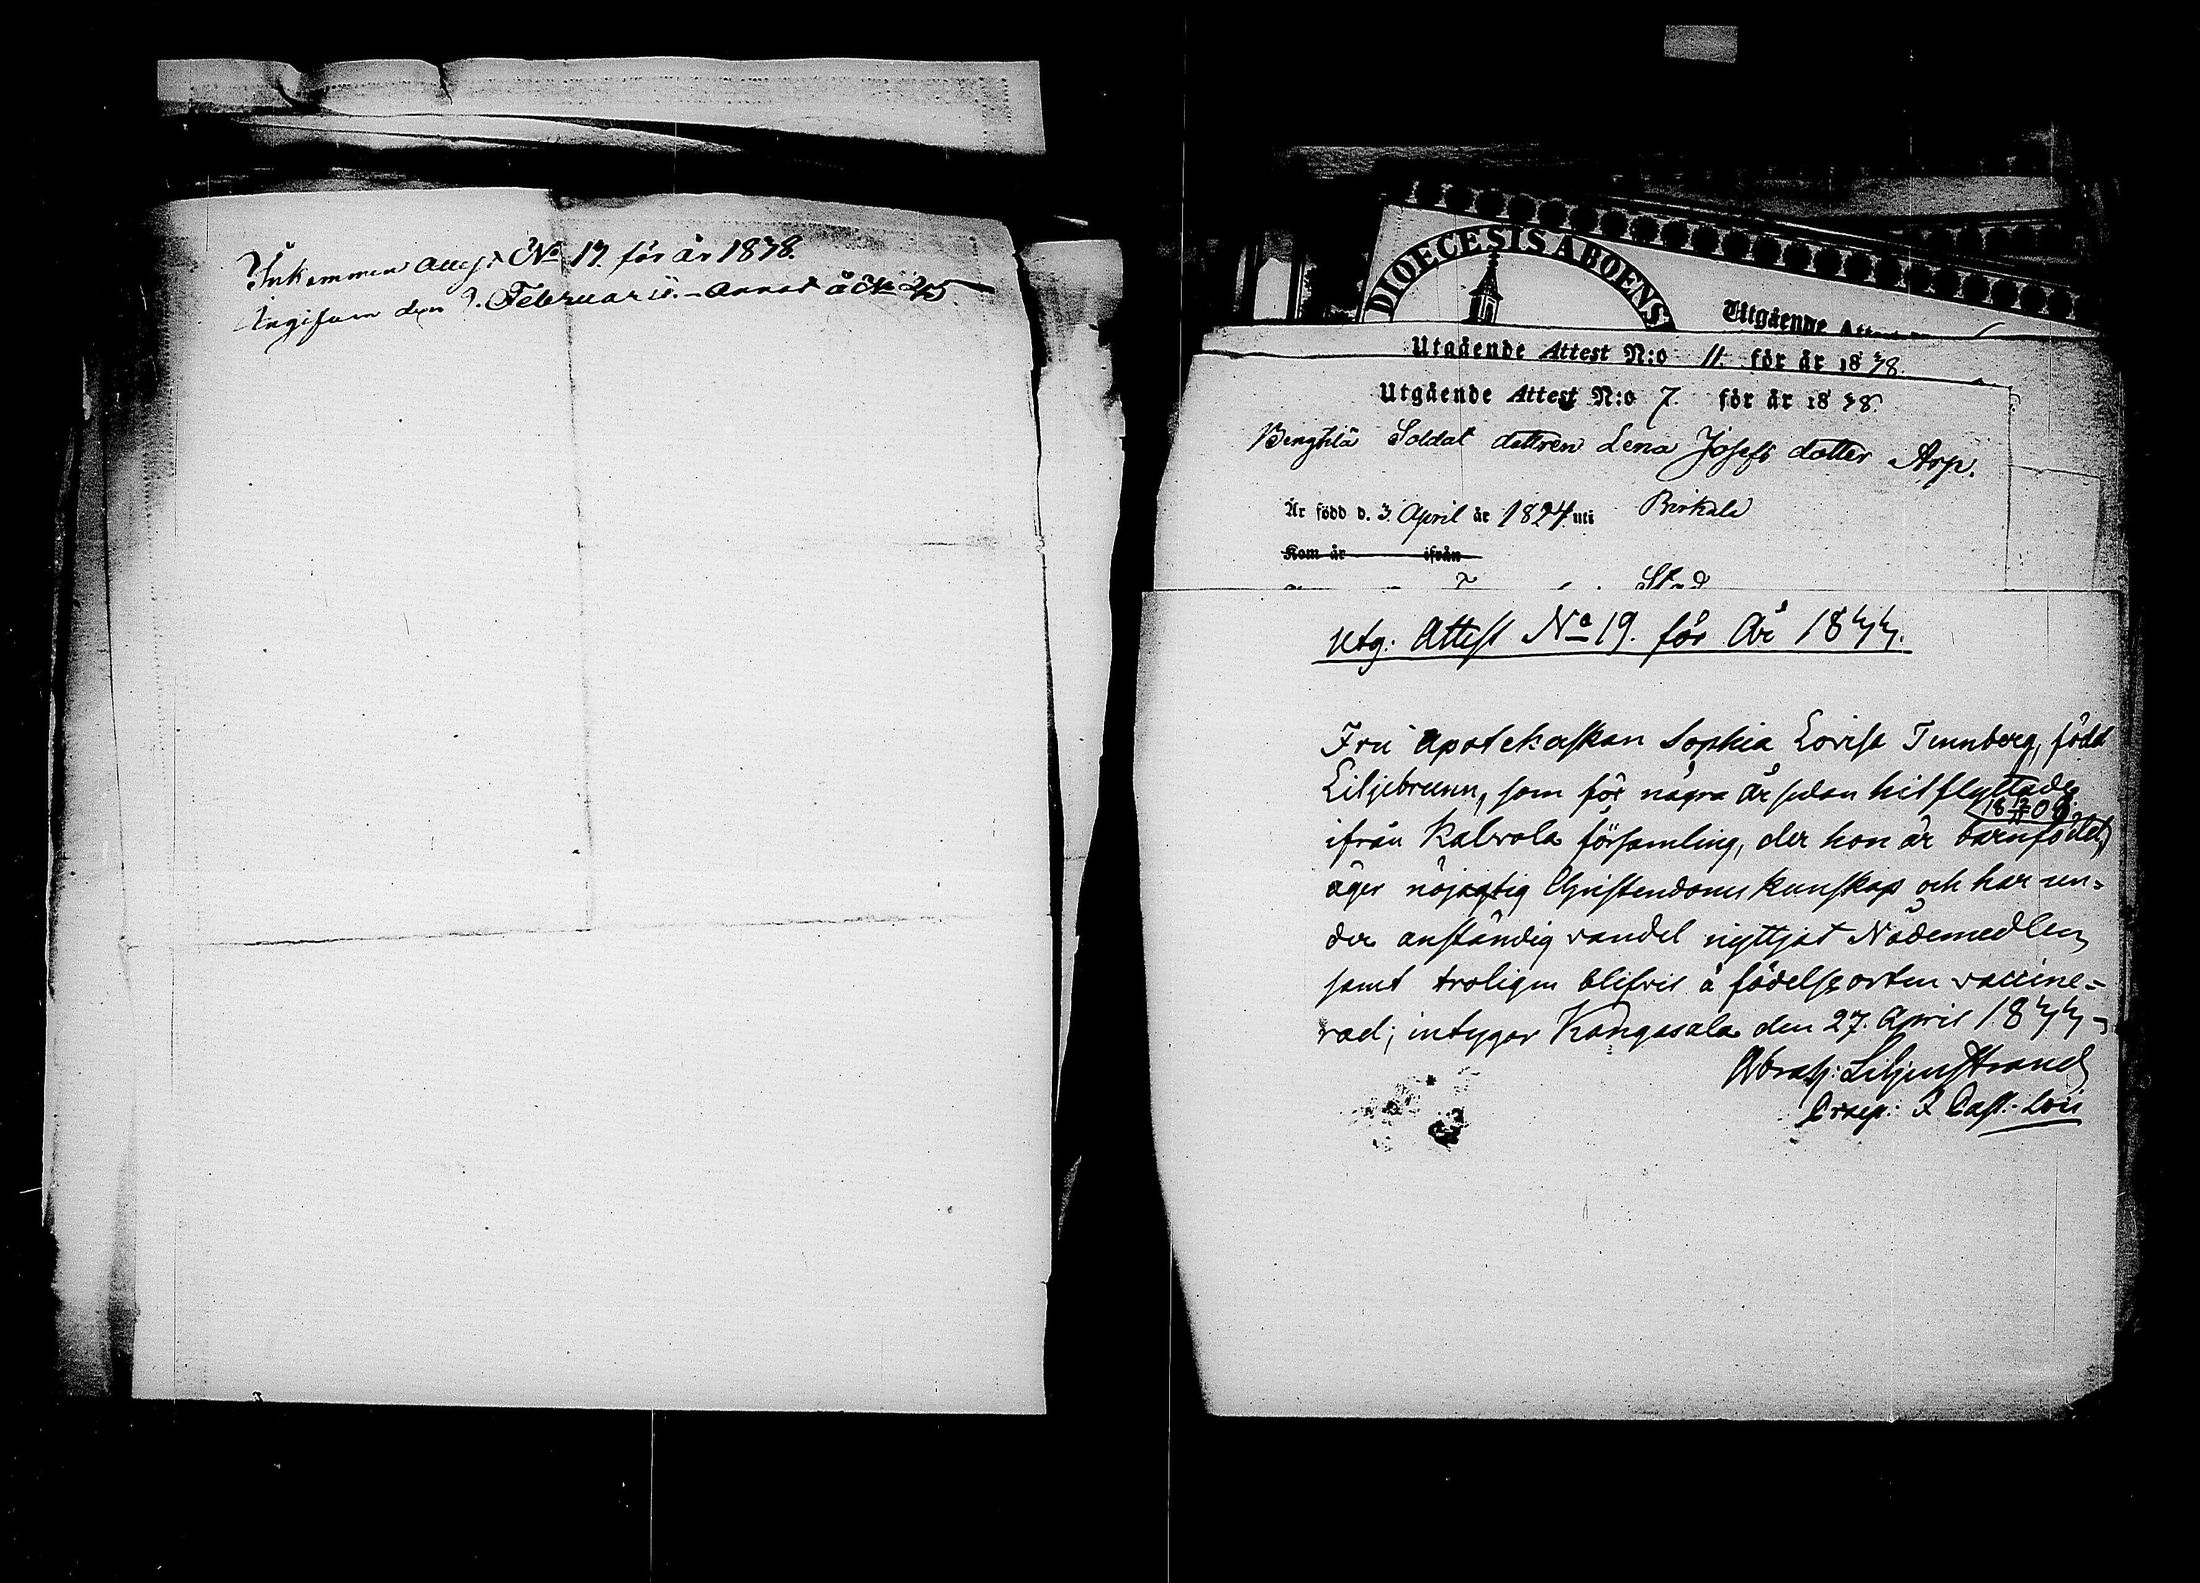 Inkommen attest No 17. för år 1878.
Ingifven den 7. Februarii. annot. å No 245
DIOECESIS ABOENS
Utgående
Utgående Attest N:o 11. för år 1878.
Utgående Attest N:o 7. för år 1878.
Soldat dottren Lena Josefs dotter Arp.
Är född d. 3. April år 1824. uti Birkala
Kom år ifrån
Utg: Attest No 19. för År 1877.
Fru Apotekerskan Sophia Lovisa Tennberg, född
Liljebrunn, som för några år sedan hitflyttade
ifrån Kalvola församling, der hon är barnfödd,
äger nöjagtig Christendoms kunskap och har un-
der anständig vandel nyttjat Nådemedlen,
samt troligen blifvit å födelseorten vaccine-
rad; intygar Kangasala den 27. April 1877.
Abrah: Liljenstrand